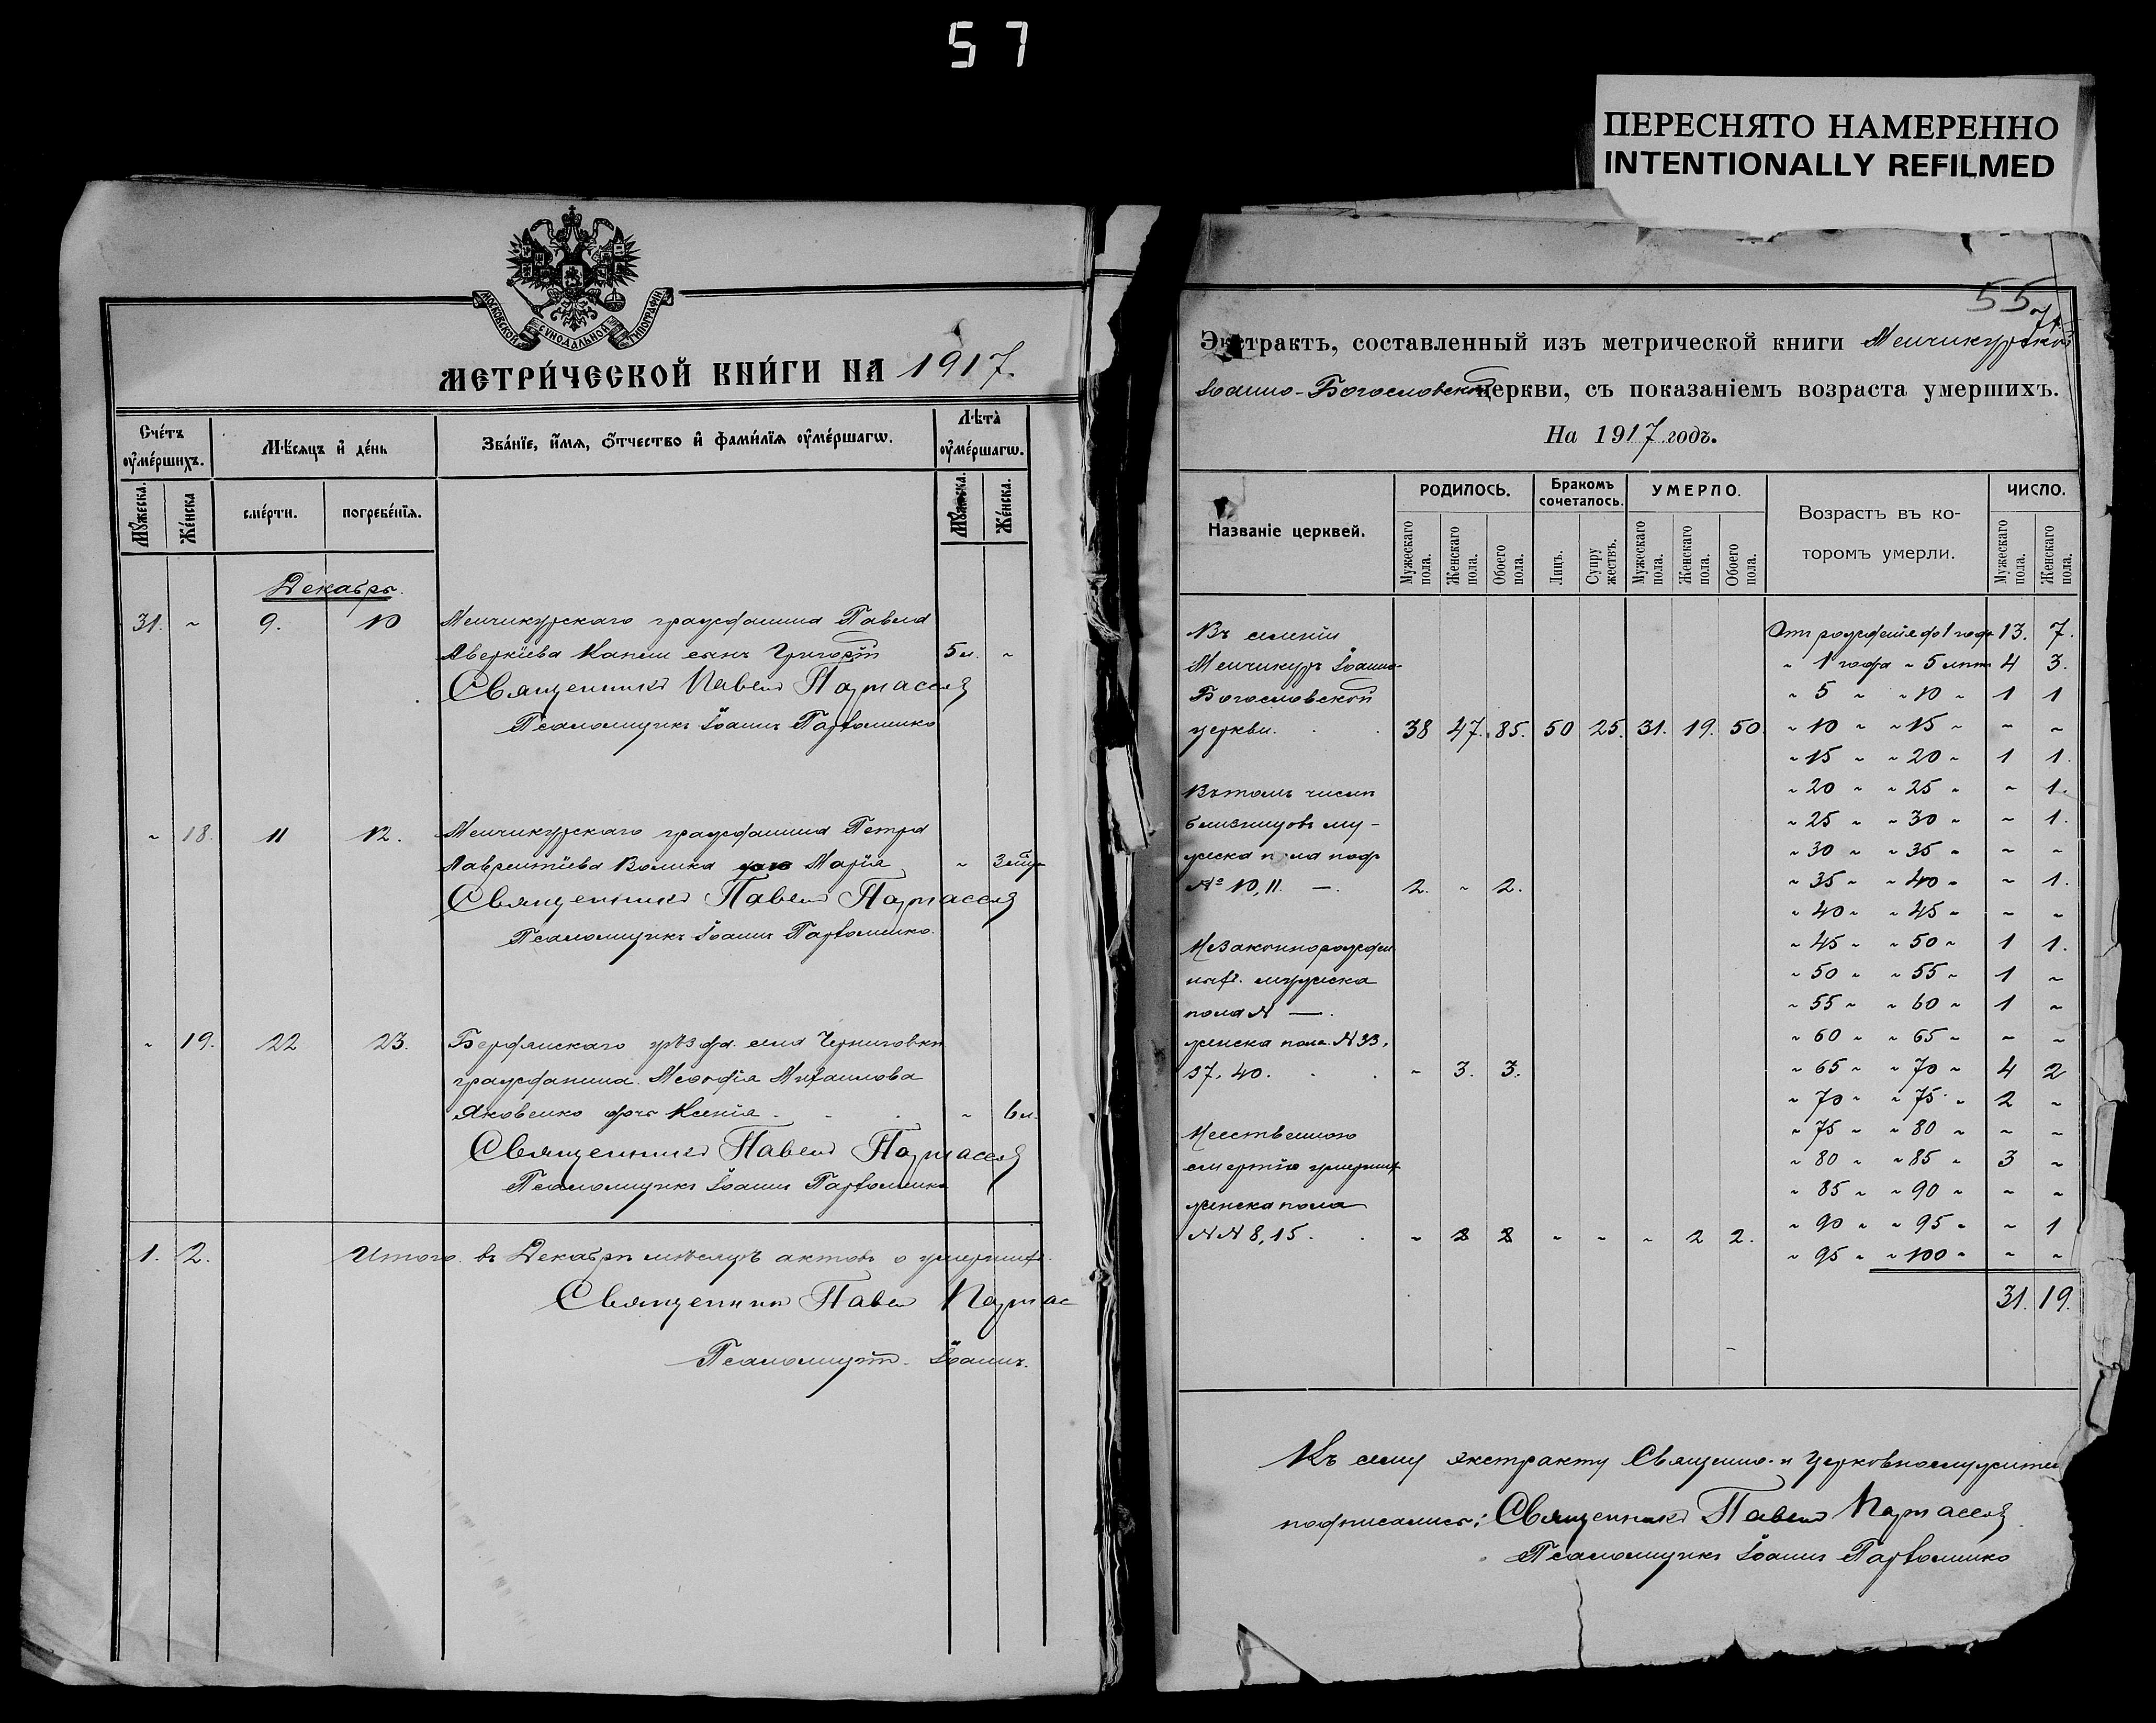 57
ПЕРЕСНЯТО НАМЕРЕННО
INTENTIONALLY REFILMED
МОСКОВСКОЙ СУНОДАЛЬНОЙ ТИПОГРАФІИ
МЕТРИ́ЧЕСКОЙ КНИ́ГИ НА 1917
Сче́тъ оу҆ме́ршихъ.
Мѣ́сяцъ и҆ де́нь
Зва́нїе, и҆́мя, ѻ҆́тчество и҆ фами́лїя оу҆ме́ршагѡ.
Лѣ́та оу҆ме́ршагѡ.
Мꙋ́жеска.
Же́нска
сме́рти.
погребе́нїя.
Мꙋ́жеска.
Же́нска.
Декабрь.
31. ~ 9. 10 Менчикурскаго гражданина Павла
Аверкіева сынъ Григорій 5 л. ~
Священникъ Павелъ
Псаломщикъ Іоаннъ
~ 18. 11 12. Менчикурскаго гражданина Петра
Лаврентіева Волика дочь Марія ~ 3
Священникъ Павелъ
Псаломщикъ Іоаннъ
~ 19. 22 23. Бердянскаго уѣзда села Черниговки
гражданина Михаилова
Яковенко дочь Ксенія ~ 6 л.
Священникъ Павелъ
Псаломщикъ Іоаннъ
1. 2. Итого въ Декабрѣ мѣсяцѣ актовъ о умершихъ.
Священникъ Павелъ
Іоаннъ.
55
Экстрактъ, составленный изъ метрической книги Менчикурской
Іоанно-Богословской церкви, съ показаніемъ возраста умершихъ.
На 1917 годъ.
Названіе церквей.
РОДИЛОСЬ.
Бракомъ сочеталось.
УМЕРЛО.
Возрастъ въ которомъ умерли.
ЧИСЛО.
Мужескаго пола.
Женскаго пола.
Обоего пола.
Лицъ.
Супружествъ.
Мужескаго пола.
Женскаго пола.
Обоего пола.
Мужескаго пола.
Женскаго пола.
Въ селеніи
Менчикуръ Іоанно-
Богословской
церкви. 38 47. 85. 50 25. 31. 19. 50
Въ томъ числѣ
близнецовъ му-
жеска пола под
№ 10, 11. — 2. ~ 2.
Незаконнорожден
ныхъ мужеска
пола № —.
женска пола № 33,
37, 40. ~ 3. 3.
смертію умершихъ
женска пола
№№ 8, 15. ~ 2 2 ~ ~ ~ 2 2.
Отъ рожденія до 1 года 13. 7.
" 1 года " 5 лѣтъ 4 3.
" 5 " " 10 " 1 1
" 10 " " 15 " ~ ~
" 15 " " 20 " 1 1.
" 20 " " 25 " ~ 1.
" 25 " " 30 " ~ 1.
" 30 " " 35 " ~ ~
" 35 " " 40 " ~ 1.
" 40 " " 45 " ~ ~
" 45 " " 50 " 1 1.
" 50 " " 55 " 1 ~
" 55 " " 60 " 1 ~
" 60 " " 65 " ~ ~
" 65 " " 70 " 4 2
" 70 " " 75 " 2 ~
" 75 " " 80 " ~ ~
" 80 " " 85 " 3 ~
" 85 " " 90 " ~ ~
" 90 " " 95 " ~ 1
" 95 " " 100 " ~ ~
31. 19.
Къ сему экстракту Священно- и Церковнослужители
подписались: Священникъ Павелъ
Псаломщикъ Іоаннъ